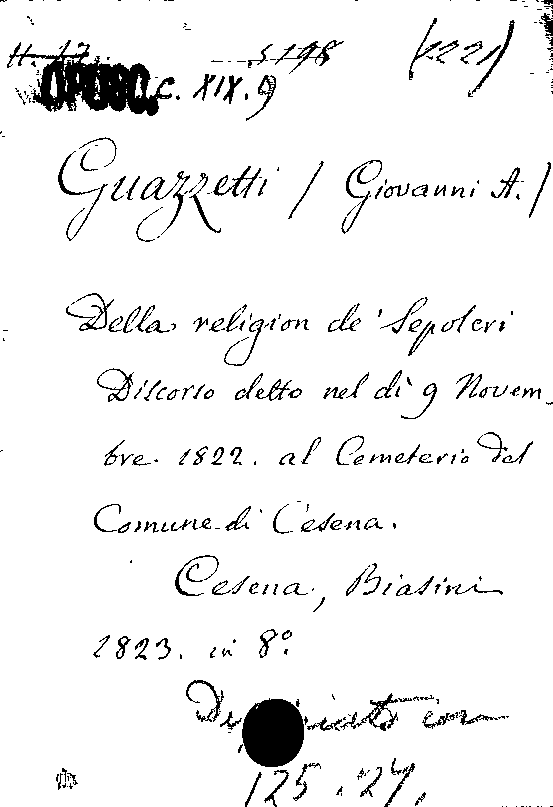 H. 17 5198 (1221)
OPUSC. XIX.9
Guazzetti / Giovanni A. /
Della religion de' Sepolcri
Discorso detto nel dì 9 Novem
bre 1822. al Cemeterio del
Comune di Cesena.
Cesena, Biasini
1823. in 8°.
con
125.27.